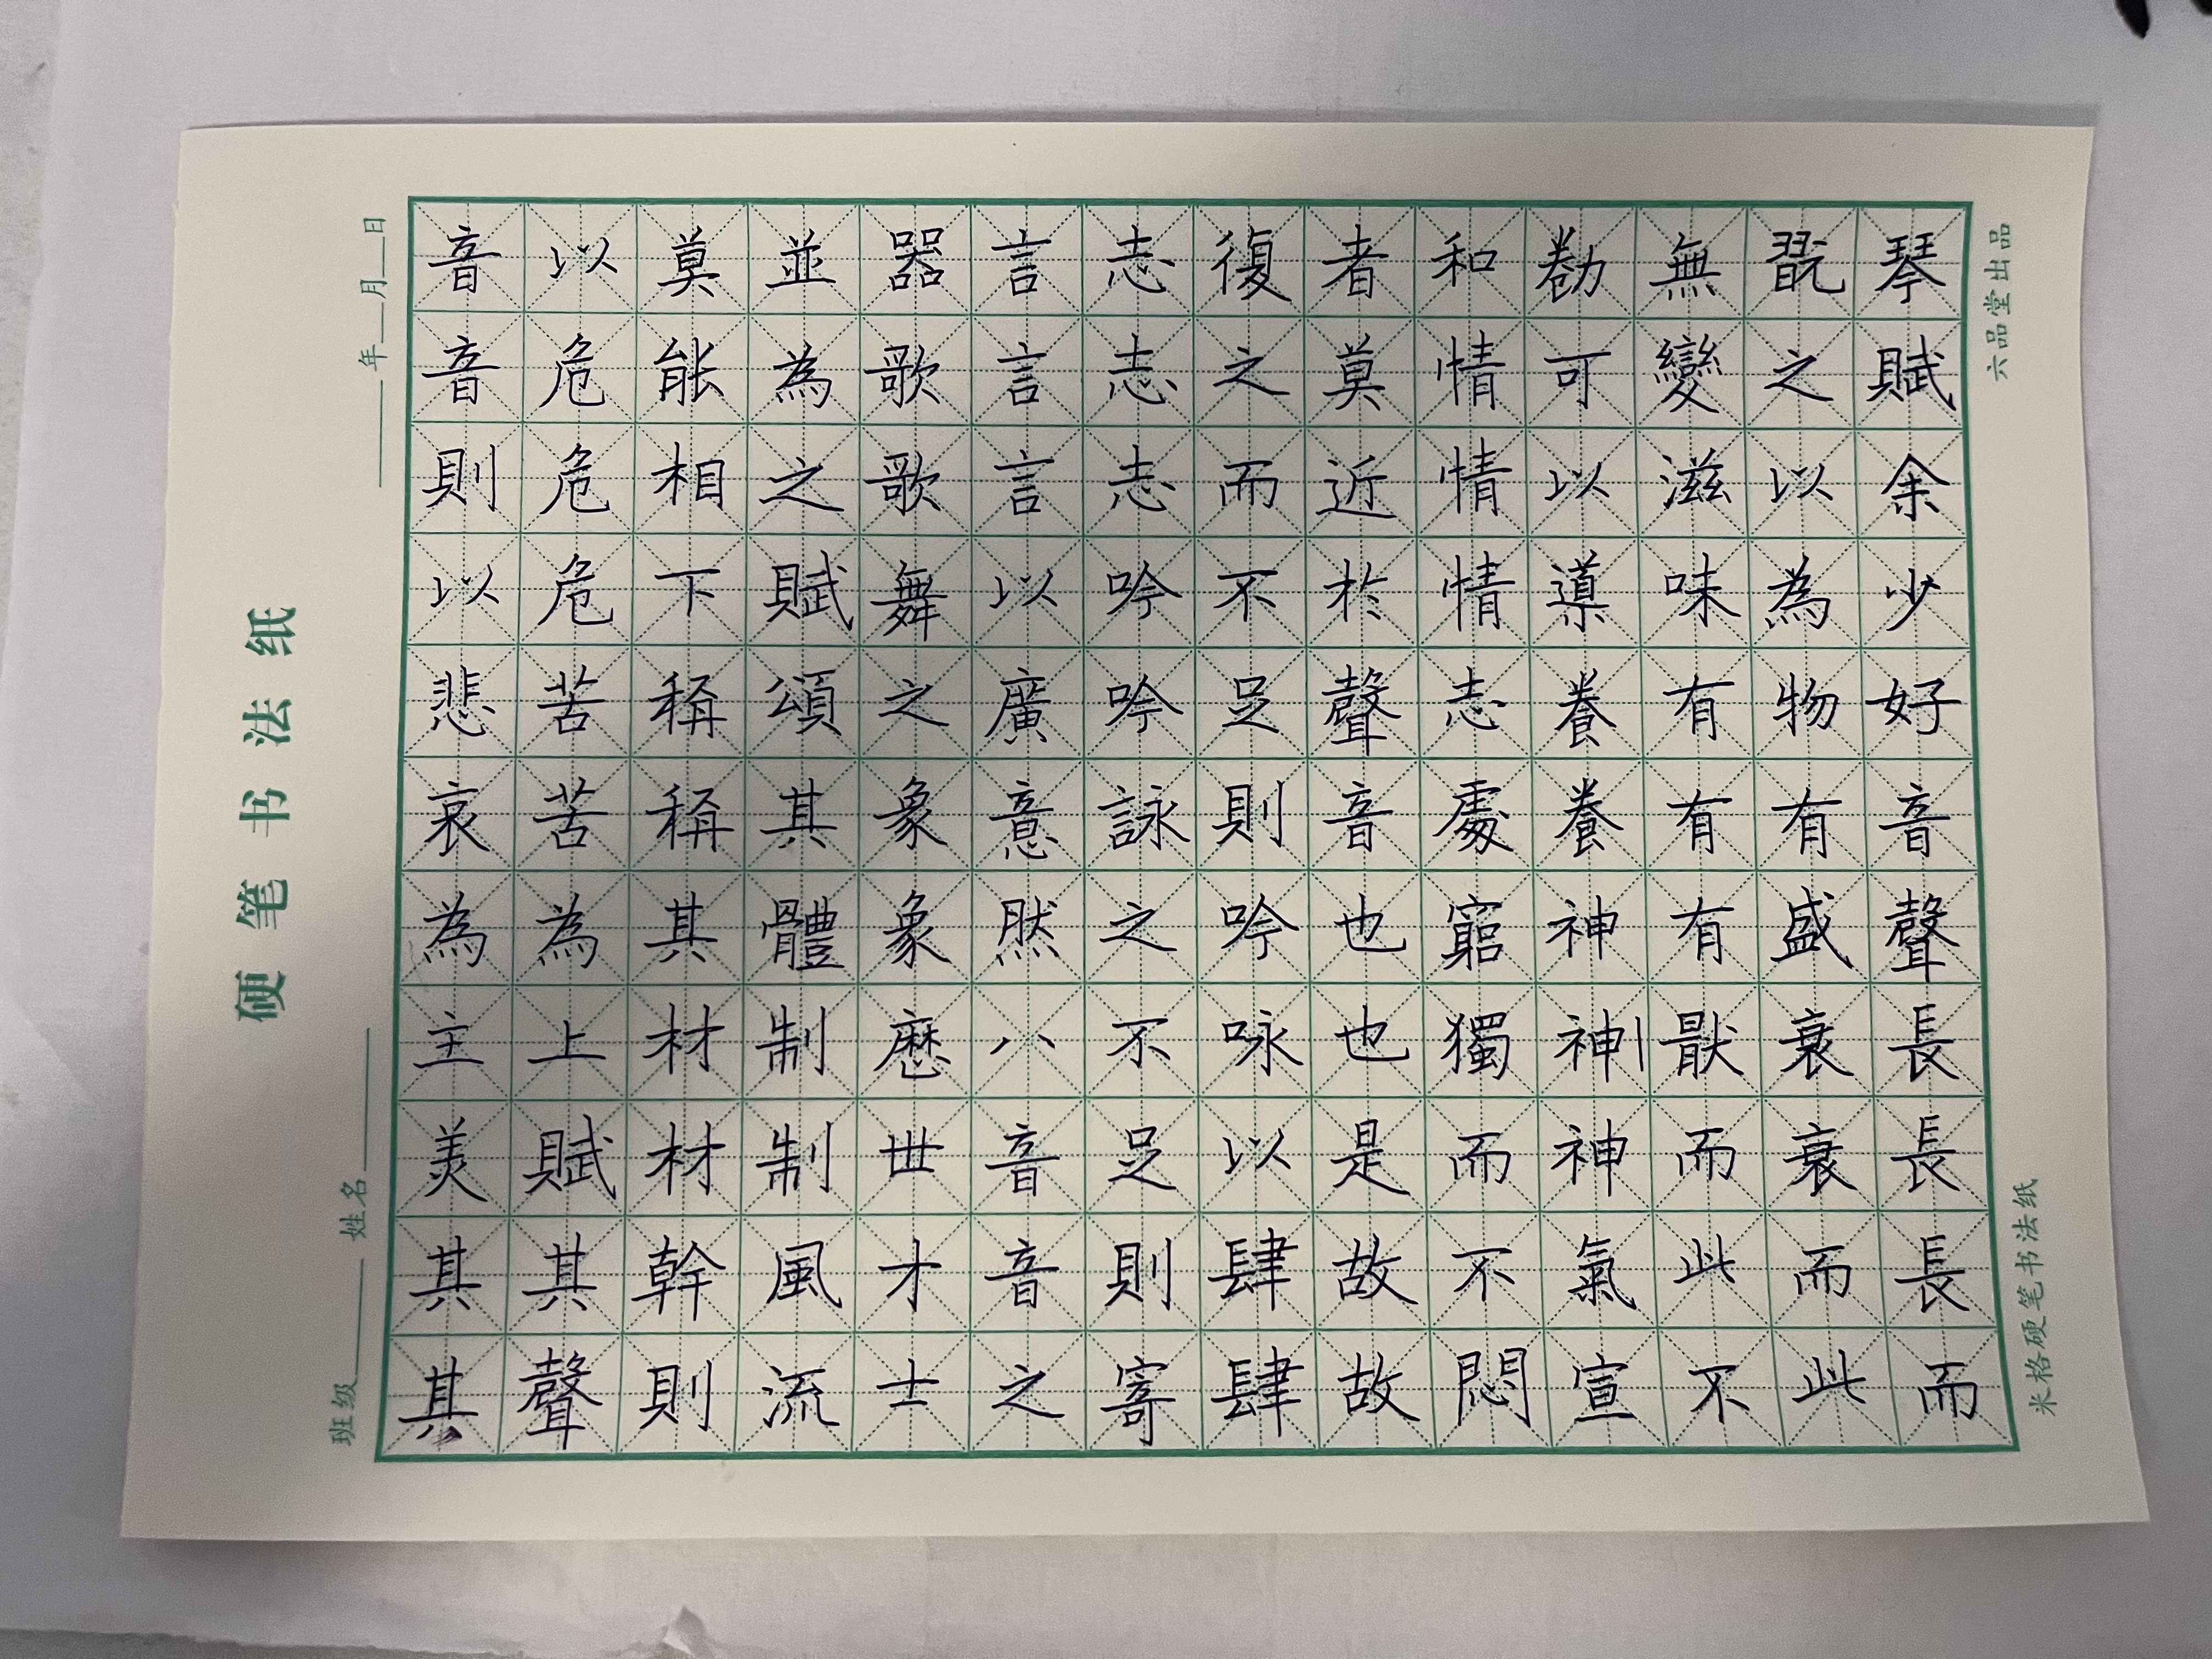 硬笔书法纸
班级 姓名 年 月 日
琴賦余少好音聲長長長而
翫之以為物有盛衰衰而此
無變滋味有有有猒而此不
勌可以導養養神神神氣宣
和情情情志處窮獨而不悶
者莫近於聲音也也是故故
復之而不足則吟詠以肆肆
志志志吟吟詠之不足則寄
言言言以廣意然八音音之
器歌歌舞之象象歷世才士
並為之賦頌其體制制風流
莫相下稱稱其材材幹則
以危危危苦苦為上賦其聲
音音則以悲哀為主美其其
米格硬笔书法纸
六品堂出品